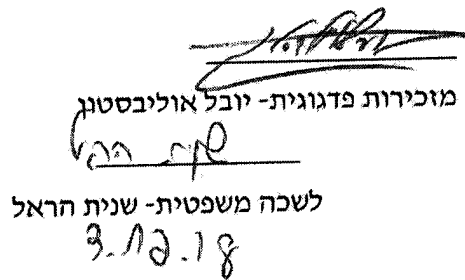 מזכירות פדגוגית- יובל אוליבסטנן
לשכה משפטית- שנית הראל
3.12.18